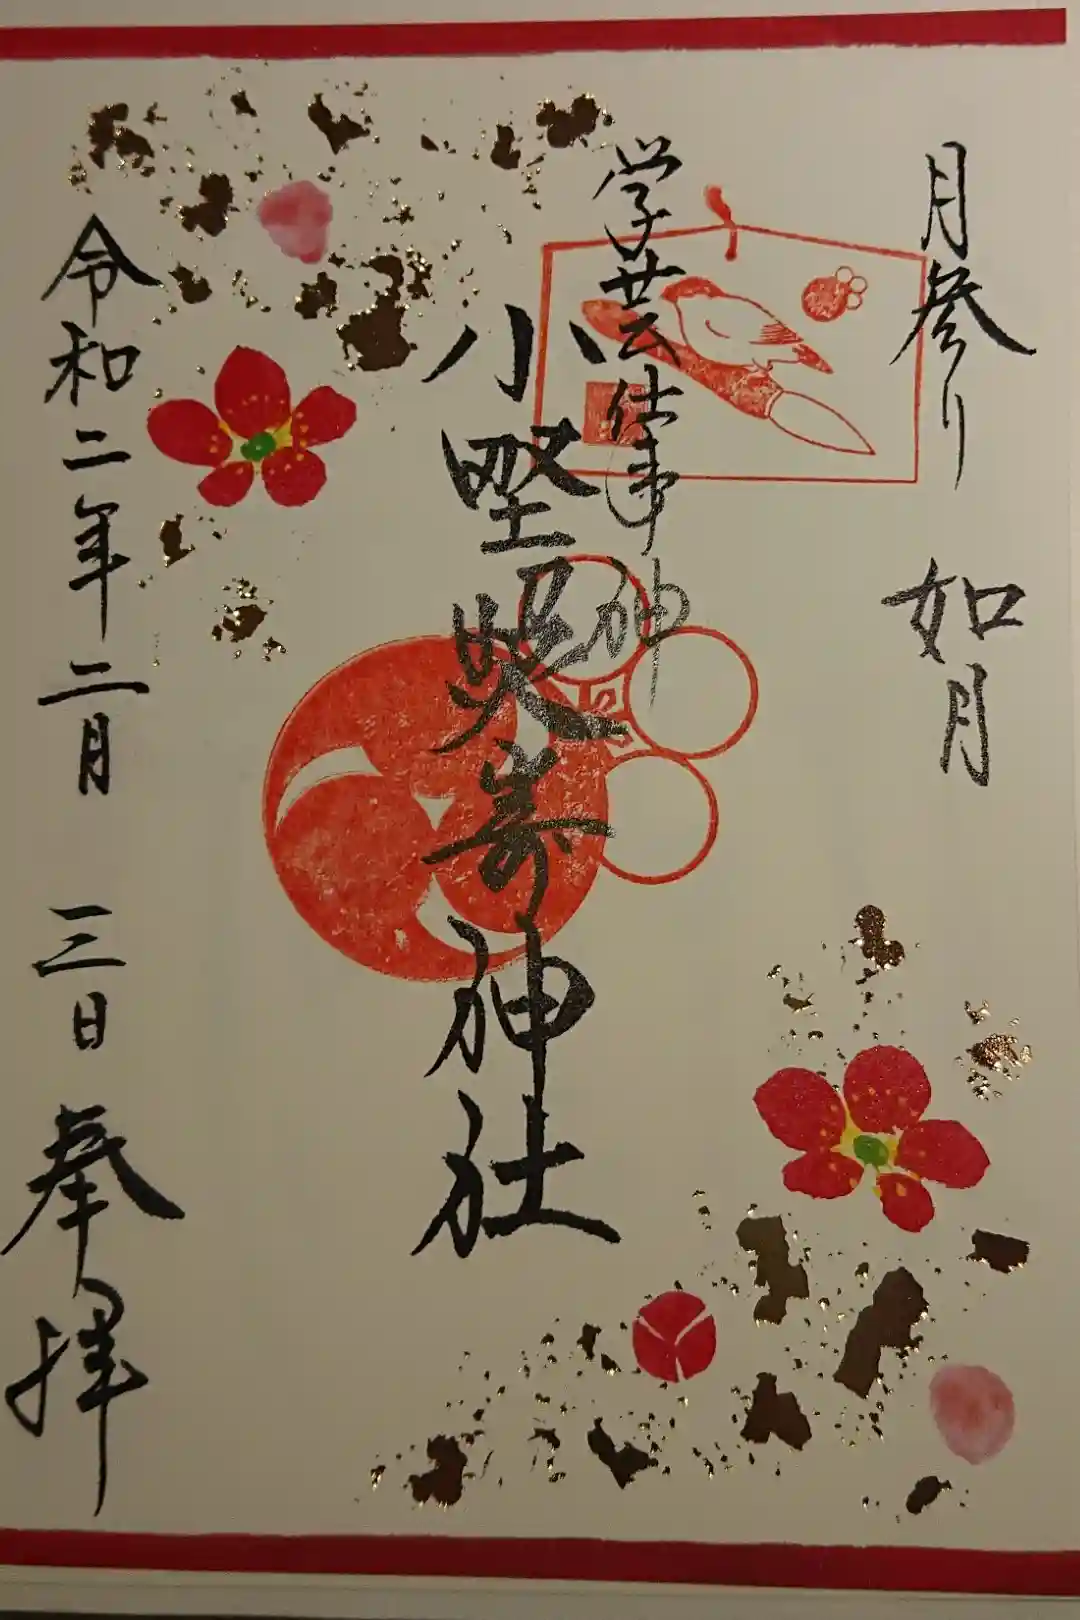 月参り 如月
学芸仕事神
小野照崎神社
令和二年二月 三日 奉拝